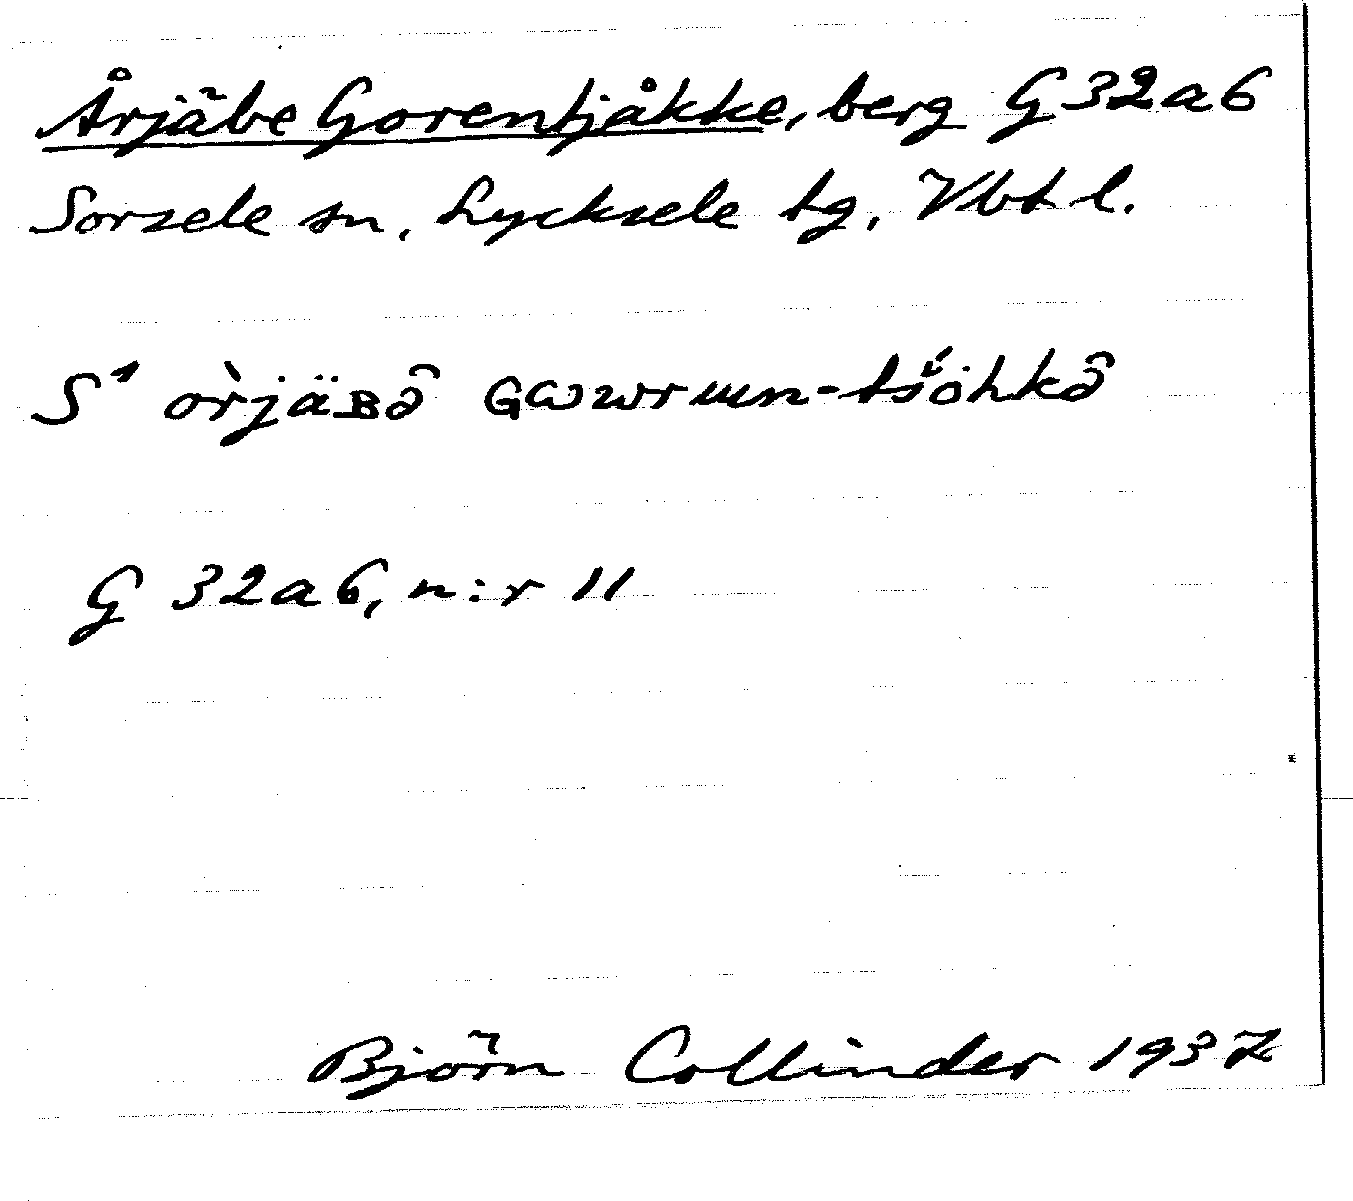 Årjäbe Gorentjåkke, berg G32a6
Sorsele sn, Lycksele tg, Vbt l.
S¹ or̀jäʙə̑ ɢωwrɯn-tš́öhkə̑
G 32a6, n:r 11
Björn Collinder 1937